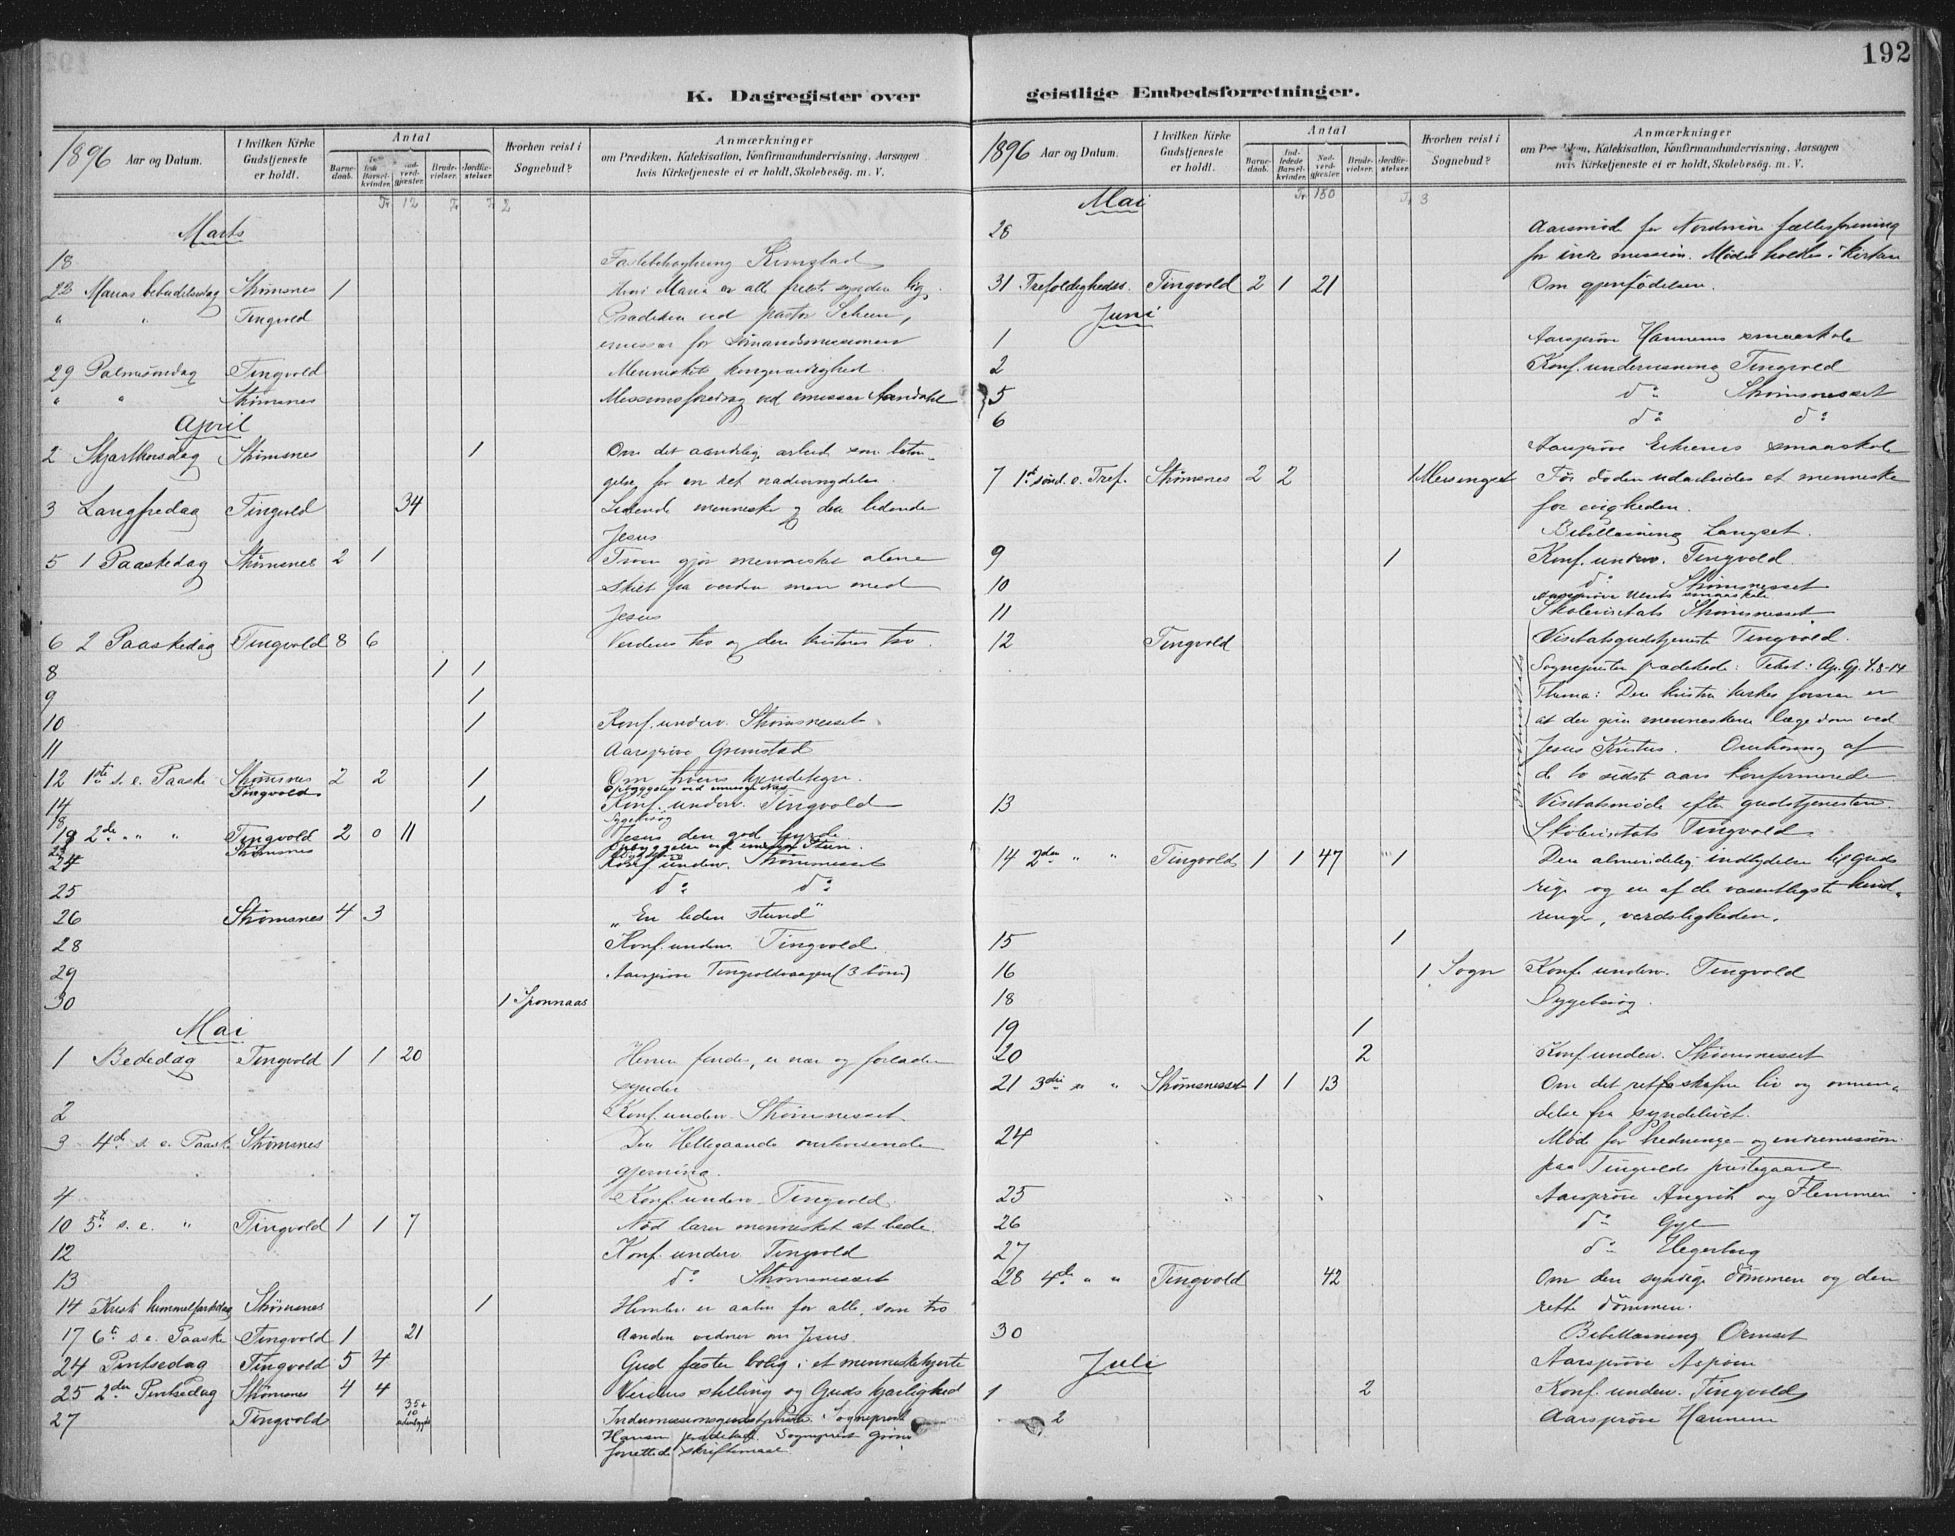 192
K. Dagregister over
1896 Aar og Datum.
I hvilken Kirke Gudstjeneste er holdt.
Antal
Barnedaab.
Barselkvinder.
Nadverdgjæster.
Brudevielser.
Jordfæstelser.
Hvorhen reist i Sognebud?
Anmærkninger
om Prædiken, Katekisation, Konfirmandundervisning, Aarsagen
hvis Kirketjeneste ei er holdt, Skolebesög. m. V.
Tr. 12 Tr. Tr. 2
Marts
18
Marias bebudelsesdag Strømsnes 1 Maria er
" " Tingvold Prædiken ved pastor
emissær for Sømandsmissionen
29 Palmesøndag Tingvold Menneskets kongeværdighed.
" " Strømsnes Missionsforedrag ved emissær Aandahl
April
2 Skjærthorsdag Strømsnes 1 Om det aandelige arbeid som betin-
gelse for en ret nadvernydelse.
3 Langfredag Tingvold 34 Lidende mennesker og den lidende
Jesus
5 1 Paaskedag Strømsnes 2 1 Troen gjør mennesket alene
skilt fra verden men med
Jesus
6 2 Paaskedag Tingvold 8 6 Verdens tro og den kristnes tro.
8 1 1
9 1
10 1 Konf. underv. Strømsnesset.
11 Aarsprøve Grimstad
12 1ste s. e. Paaske Strømsnes 2 2 1 Om troens kjendetegn.
Tingvold Opbyggelse ved emissær
14 1 Konf. underv. Tingvold
18 Sygebesøg
19 2den " " Tingvold 2 0 11 Jesus den gode hyrde.
Strømsnes Opbyggelse ved emissær
24 Konf. underv. Strømsnesset
25 do do
26 Strømsnes 4 3 "En liden stund"
28 Konf. underv. Tingvold
29 Aarsprøve Tingvoldvaagen (3 børn)
30 1 Sponnaas
Mai
1 Bededag Tingvold 1 1 20 Herren findes, er nær og forlader
synder
2 Konf. underv. Strømsnesset
3 4de s. e. Paaske Strømsnes Den Helligaands overbevisende
gjerning.
4 Konf. underv. Tingvold
10 5te s. e. " Tingvold 1 1 7 Nød lærer mennesket at bede.
12 Konf. underv. Tingvold
13 do Strømsnesset
14 Kristi himmelfartsdag Strømsnes 1 Himlen er aaben for alle, som tro
17 6te s. e. Paaske Tingvold 1 21 Aanden vidner om Jesus.
24 Pintsedag Tingvold 5 4 Gud fæster bolig i et menneskehjerte
25 2den Pintsedag Strømsnes 4 4 Verdens stilling og Guds kjærlighed
27 Tingvold 35+ 10 Indremissionsgudstjeneste. Sogneprest
Hansen prædikede. Sogneprest
forrettede skriftemaal.
geistlige Embedsforretninger.
1896 Aar og Datum.
I hvilken Kirke Gudstjeneste er holdt.
Antal
Barnedaab.
Indledede Barselkvinder.
Nadverdgjæster.
Brudevielser.
Jordfæstelser.
Hvorhen reist i Sognebud?
Anmærkninger
om Prædiken, Katekisation, Konfirmandundervisning, Aarsagen
hvis Kirketjeneste ei er holdt, Skolebesög. m. V.
Tr. 150 Tr. 3
Mai
28 Aarsmøde for Nordmøre fællesforening
for indre mission. Mødet holdtes i kirken
31 Trefoldigheds. Tingvold 2 1 21 Om gjenfødelsen.
Juni
1 Aarsprøve Hannems smaaskole
2 Konf. undervisning Tingvold
5 do Strømsnesset
6 do do
Aarsprøve smaaskole
7 1ste sønd. e. Tref. Strømsnes 2 2 1 Meisingset Før døden udarbeides et menneske
for evigheden.
Bibellæsning Langset.
9 1 Konf. underv. Tingvold.
10 do Strømsnesset
Aarsprøve smaaskole
11 Skolevisitats Strømsnesset.
12 Tingvold Visitatsgudstjeneste Tingvold.
Sognepresten prædikede: Tekst: Ap. Gj. 4. 8-14
Thema: Den kristne kirkes fornar er
at den giver menneskene lægedom ved
Jesus Kristus. Overhøring af
de to sidst aars konfirmerede
13 Visitatsmøde efter gudstjenesten.
Skolevisitats Tingvold
14 2den " " Tingvold 1 1 47 1 Den almindelige indbydelse til Guds
rige og en af de væsentligste hind-
ringer, verdsligheden.
15 1
16 1 Sogn Konf. underv. Tingvold
18 Sygebesøg.
19 1
20 2 Konf. underv. Strømsnesset
21 3die " " Strømsnesset 1 1 13 Om det retskafne liv og omven-
delse fra syndelivet.
24 Møde for hedninge- og indremission
paa Tingvolds prestegaard
25 Aarsprøve Angvik og Flemmen
26 do Gyl
27 do Hegerberg
28 4de " " Tingvold 42 Om den syndige dømmen og den
rette dømmen.
30 Bibellæsning Ormset
Juli Aarsprøve Aspøen
1 2 Konf. underv. Tingvold
2 Aarsprøve Hannem